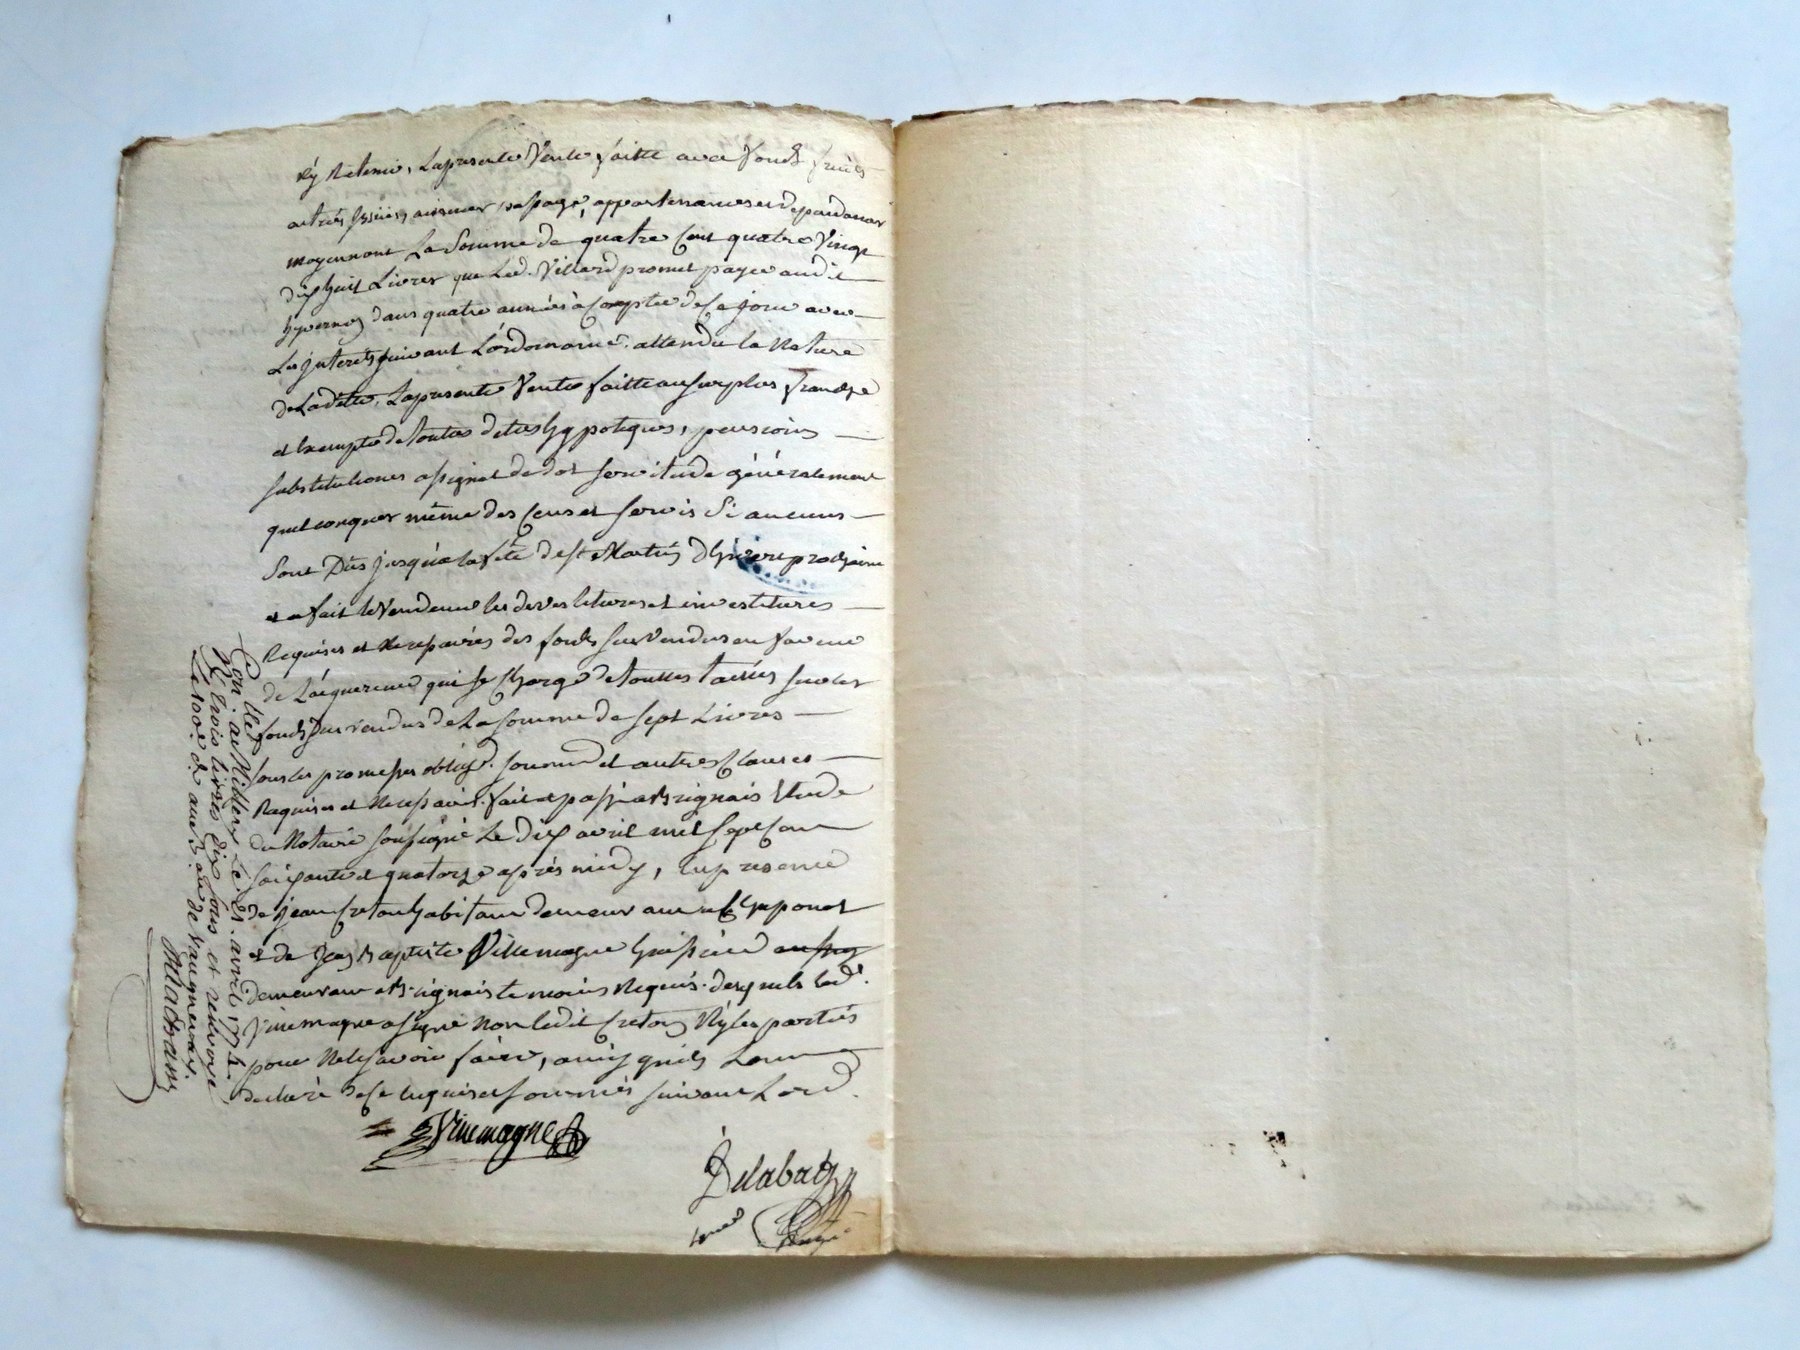 Ny Retenir, La presente Vente faitte avec fonds fruits
entrées issües aisances passage, appartenances et dependances
moyennant La Somme de quatre Cent quatre Vingt
dix huit Livres que Led. Villard promet payer audit
hyvernos dans quatre années à Compter de Ce jour avec
Les jnterets suivant L'ordonnance. attendu la Nature
de La dette. La presente Vente faitte au surplus franche
et Exempte de toutes dettes hypoteques, pensions
substitutions assignat de dot servitude généralement
quelconques même des Cens et servis Si aucuns
sont Dûs jusqu'a la fête de st Martin d'hivere prochaine
et a fait le Vendeur les devestitures et investitures
Requises et Necessaires des fonds sus Vendus en faveur
de L'acquereur qui se Charge de toutes
fonds sus vendus de La somme de sept Livres
sous les promesses oblig. soumis et autres Clauses
Requises et Necessaires. fait et passé a Brignais Etude
du Notaire soussigné Le dix avril mil sept Cent
soixante et quatorze après midy, En presence
de jean Creton habitant demeurant
et de Jean Baptiste Villemagne huissier
demeurant a Brignais temoins Requis. desquels led.
Vinemagne a signé non ledit Creton Ny les parties
pour Ne le savoir faire, ainsy qu'ils L'ont
declaré de Ce Enquis et sommés suivant L'ord.
Vinemagne
Delabat
Con.llé
R. trois livres dix sous et renvoyé
au B. au de Vaugneray.